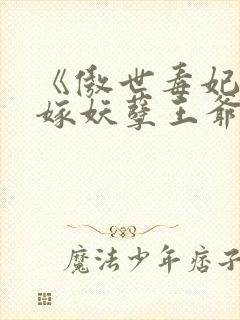 《傲世毒妃
嫁妖孽王爷
魔法少年痞子